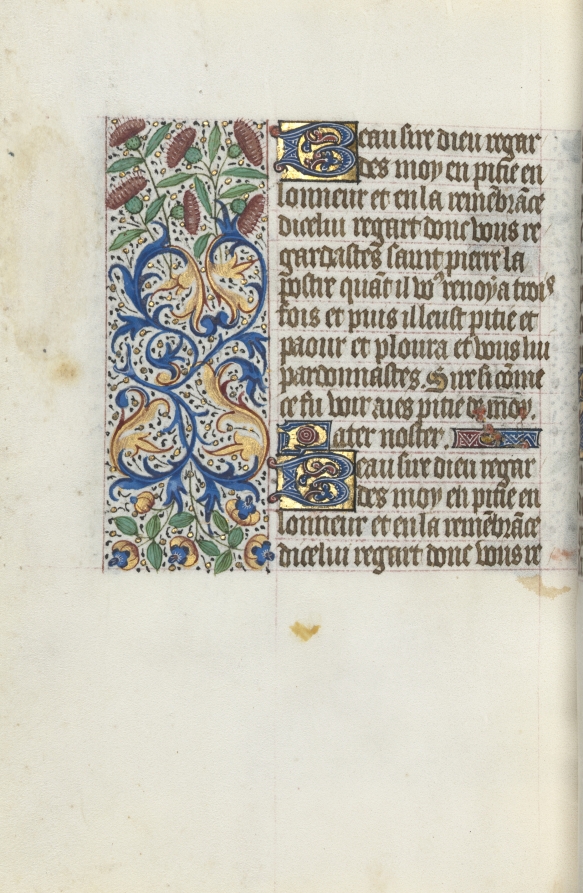 Beau sire dieu regar
des moy en pitie en
lonneur et en la remẽbrãce
dicelui regart donc vous re
gardastes saint pierre la
postre quãt il voꝰ renoya trois
fois et puis il leust pitie et
paour et ploura et vous lui
pardonnastes. Sire si cõme
ce fu voir aies pitie de moy.
Pater noster.
Beau sire dieu regar
des moy en pitie en
lonneur et en la remẽbrãce
dicelui regart donc vous re